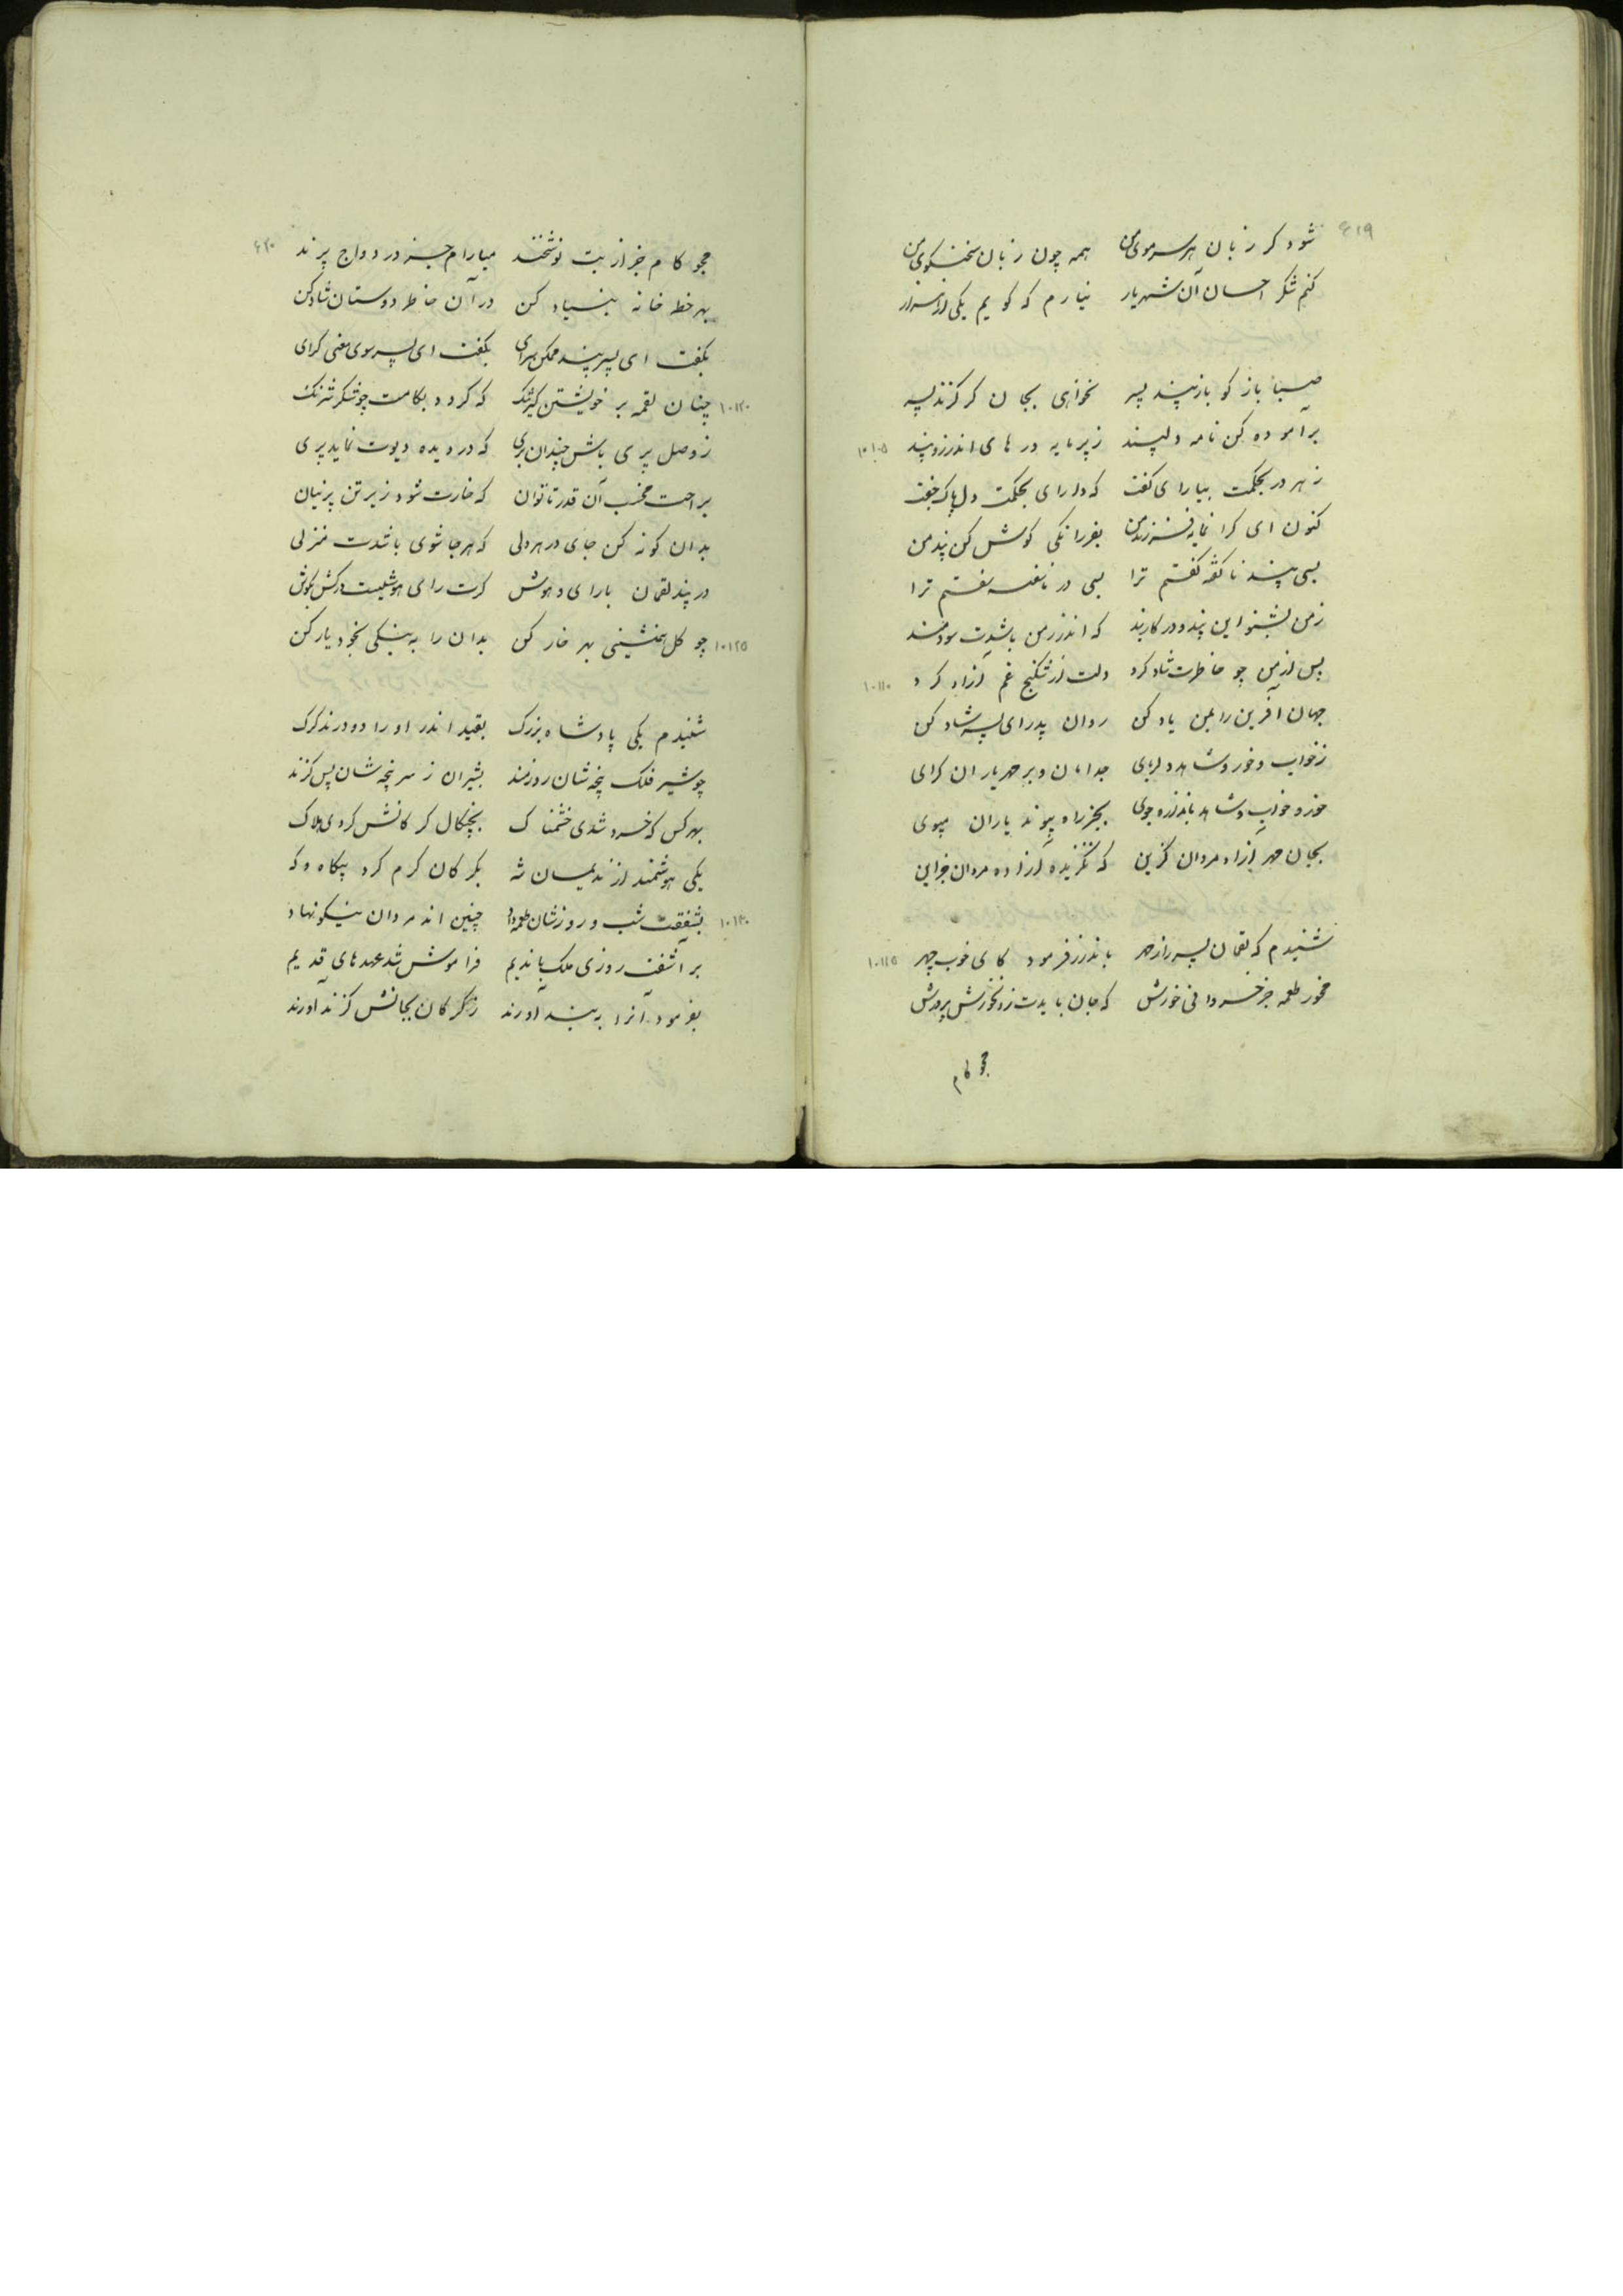 ۶۱۹
شود گر زبان هر سر موی من همه چون زبان سخنگوی من
کنم شکر احسان آن شهریار نیارم که گویم یکی از هزار
صبا باز گو باز پند پسر نخواهی بجان گر گزند پسر
برآموده کن نامه دلپسند ز پرمایه درهای اندرز و پند ۱۰۱۰۵
ز هر در بحکمت بیارای گفت که دارای حکمت دل پاک جفت
کنون ای گرانمایه فرزند من بفرزانگی گوش کن پند من
بسی پند ناگفته گفتم ترا بسی در ناسفته سفتم ترا
ز من بشنو این پند و در کار بند که اندرز من باشدت سودمند
پس از من چو خاطرت شاد کرد دلت از شکنج غم آزاد کرد ۱۰۱۱۰
جهان آفرین را بمن یاد کن روان پدر ای پسر شاد کن
ز خواب و خور و شاهد دلربای جدا مان و بر مهر یاران گرای
خور و خواب و شاهد باندازه جوی بجز راه پیوند یاران مپوی
بجان مهر آزاد مردان گزین که نگزیده آزاده مردان جز این
شنیدم که لقمان پسر را ز مهر باندرز فرمود کای خوب چهر ۱۰۱۱۵
مخور طعمه جز خسروانی خورش که جان بایدت زان خورش پرورش
مجو کام
۶۲۰
مجو کام جز از بت نوشخند میارام جز در دواج پرند
بهر خطه خانه بنیاد کن در آن خاطر دوستان شاد کن
بگفت ای پسر پند ممکن سرای بگفت ای پسر سوی معنی گرای
۱۰۱۲۰ چنان لقمه بر خویشتن گیر تنگ که گردد بکامت چو شکر شرنگ
ز وصل پری باش چندان بری که در دیده دیوت نماید پری
براحت مخسب آن قدر تا توان که خارت شود زیر تن پرنیان
بدان گونه کن جای در هر دلی که هر جا شوی باشدت منزلی
در پند لقمان بارای و هوش گرت رای و هوشیست درکش بگوش
۱۰۱۲۵ چو گل همنشینی بهر خار کن بدان را به نیکی بخود یار کن
شنیدم یکی پادشاه بزرگ بقید اندر او را دو درنده گرگ
چو شیر فلک پنجه شان زورمند بشیران ز سرپنجه شان بس گزند
بهر کس که خسرو شدی خشمناک بچنگال گرگانش کردی هلاک
یکی هوشمند از ندیمان شه بگرگان کرم کرد بیگاه و گه
۱۰۱۳۰ بشفقت شب و روزشان طعمه داد چنین اند مردان نیکو نهاد
برآشفت روزی ملک با ندیم فراموش شد عهدهای قدیم
بفرمود آنرا به بند آورند ز گرگان بجانش گزند آورند